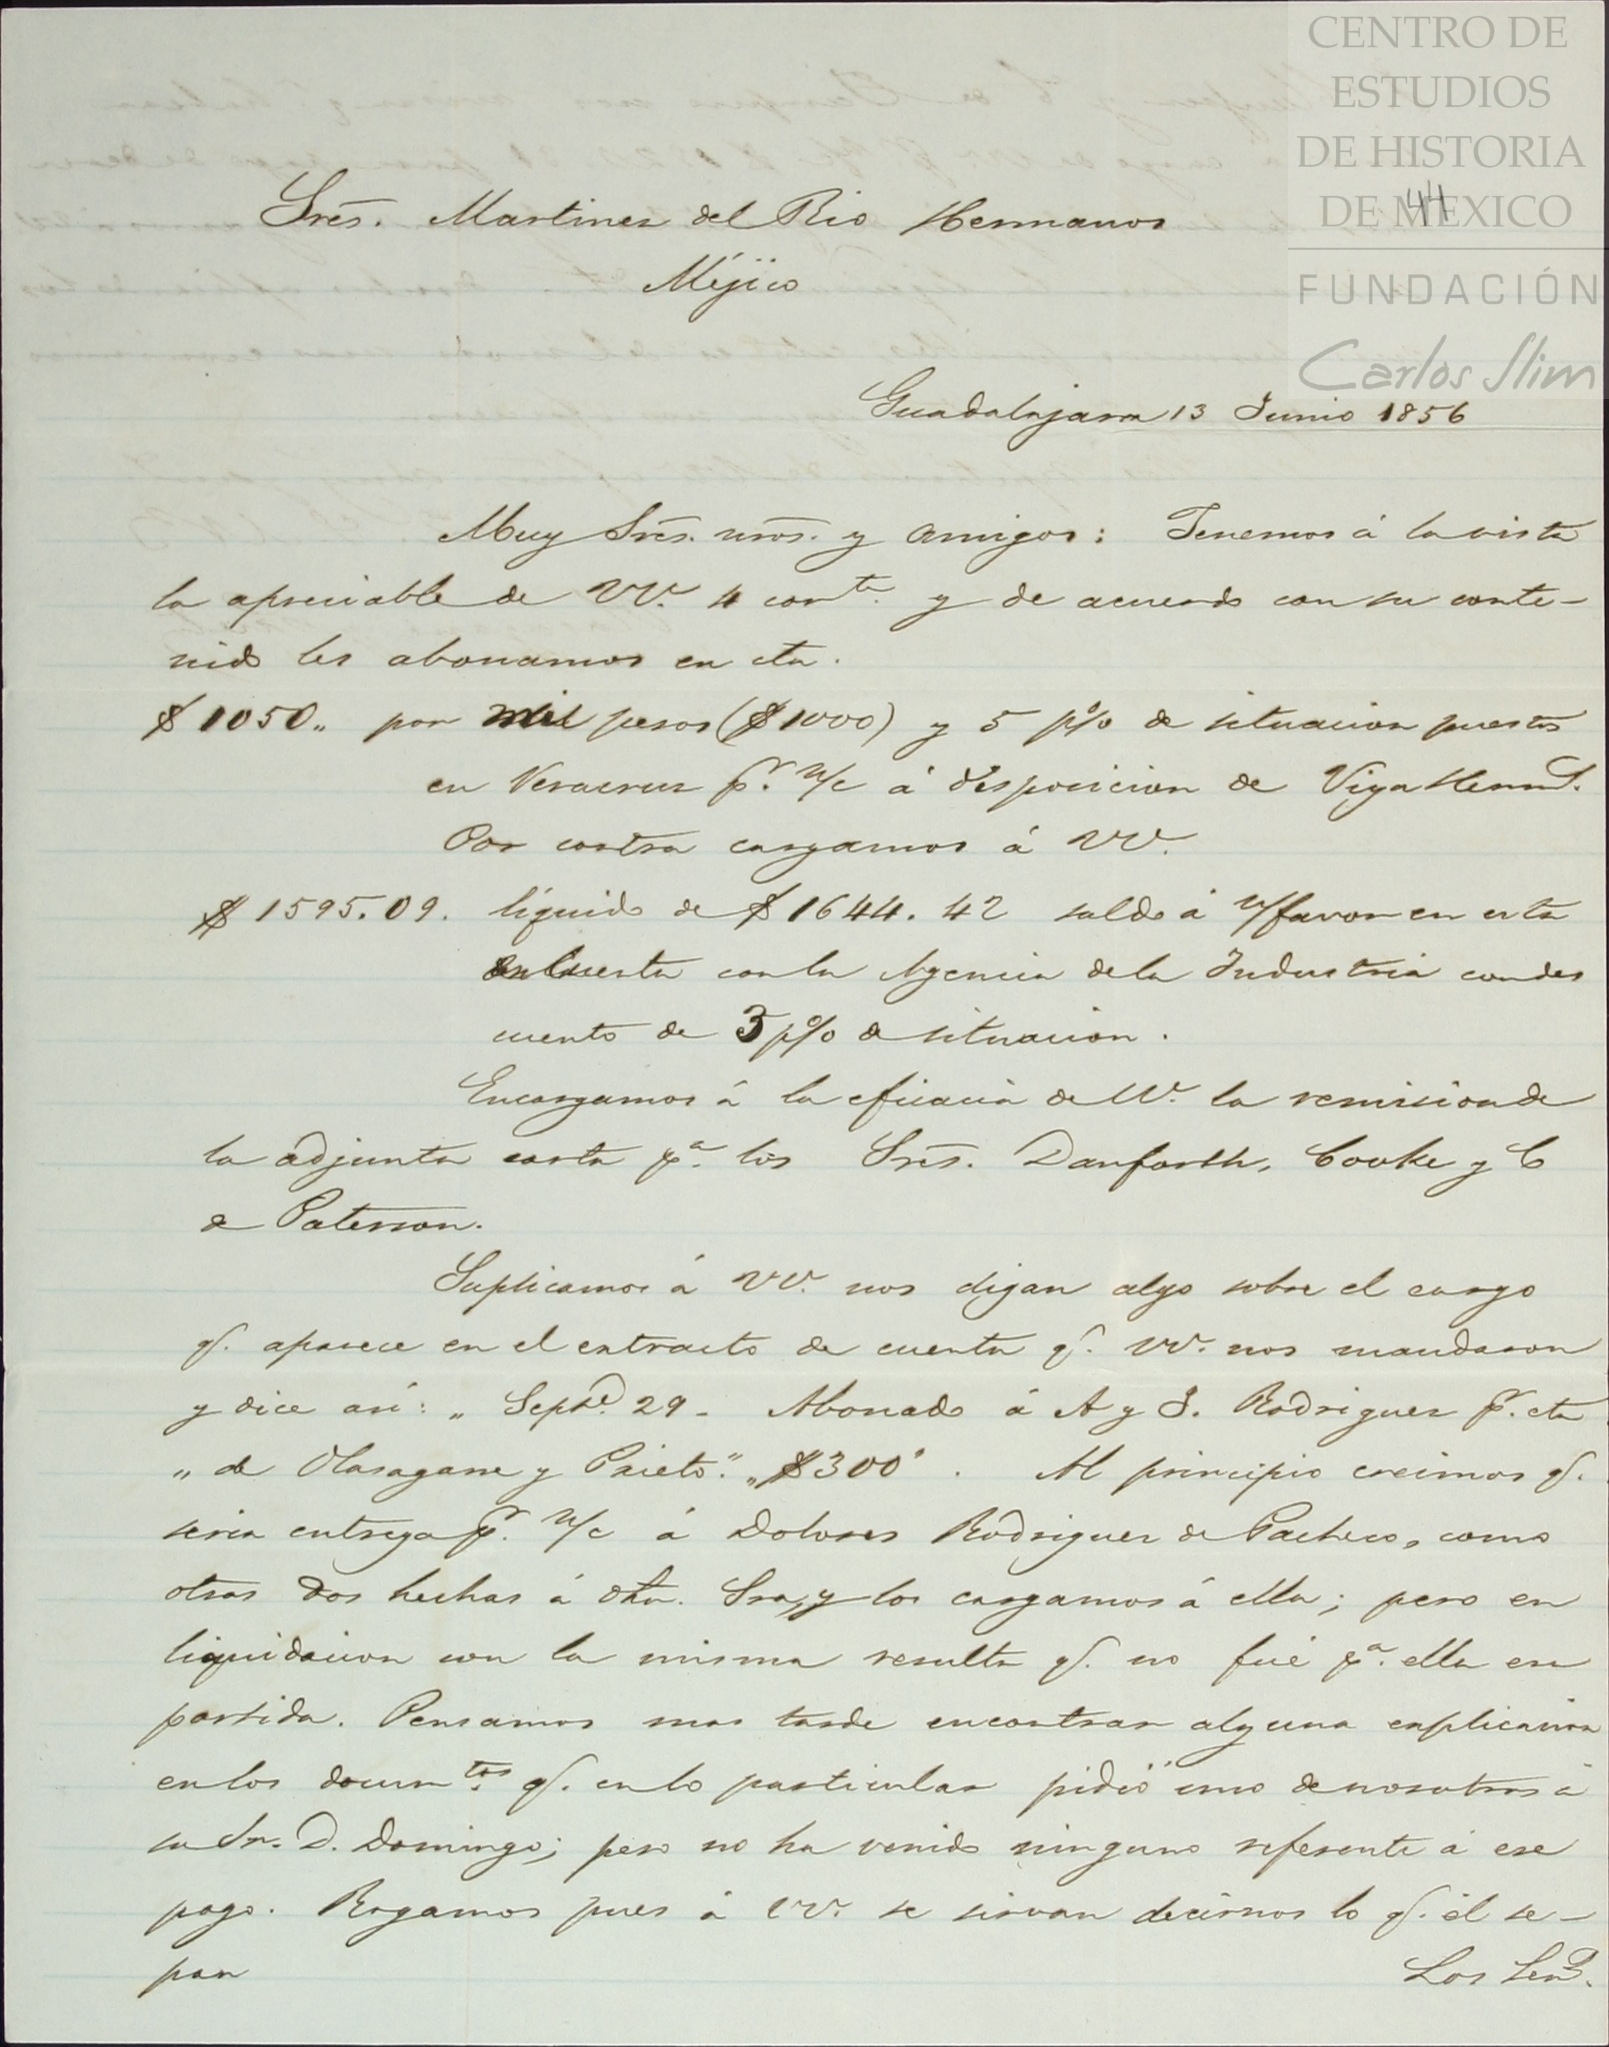 CENTRO DE
ESTUDIOS
DE HISTORIA
DE MÉXICO
FUNDACIÓN
Carlos Slim
44
Sres. Martinez del Rio Hermanos
Méjico
Guadalajara 13 Junio 1856
Muy Sres. nros. y amigos: Tenemos á la vista
la apreciable de VV. 4 corte. y de acuerdo con su conte-
nido les abonamos en cta.
$1050.. por mil pesos ($1000) y 5 p% de situacion puestos
en Veracruz pr. n/c á disposicion de Viya Herms.
Por contra cargamos á VV.
$1595.09. líquido de $1644.42 saldo á n/favor en esta
cuenta con la Agencia de la Industria con des
cuento de 3 p% de situacion.
Encargamos á la eficacia de VV. la remision de
la adjunta carta pa. los Sres. Danforth, Cooke y C
de Paterson.
Suplicamos á VV. nos digan algo sobre el cargo
q. aparece en el extracto de cuenta q. VV. nos mandaron
y dice asi: „ Sepe. 29 - Abonado á A y J. Rodriguez pr. cta
„ de Olasagarre y Prieto." „$300". Al principio creimos q.
seria entrega pr. n/c á Dolores Rodriguez de Pacheco, como
otras dos hechas á dha. Sra, y los cargamos á ella; pero en
liquidacion con la misma resulta q. no fué pa. ella esa
partida. Pensamos mas tarde encontrar alguna explicacion
en los documtos. q. en lo particular pidió uno de nosotros á
su Sr. D. Domingo; pero no ha venido ninguno referente á ese
pago. Rogamos pues á VV. se sirvan decirnos lo q. él se-
pan
Los Senr.